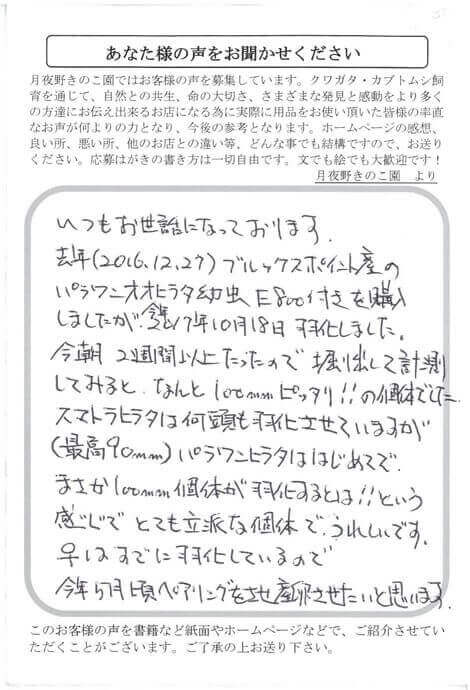 あなた様の声をお聞かせください
月夜野きのこ園ではお客様の声を募集しています。クワガタ・カブトムシ飼
育を通じて、自然との共生、命の大切さ、さまざまな発見と感動をより多く
の方達にお伝え出来るお店になる為に実際に用品をお使い頂いた皆様の率直
なお声が何よりの力となり、今後の参考となります。ホームページの感想、
良い所、悪い所、他のお店との違い等、どんな事でも結構ですので、お送り
ください。応募はがきの書き方は一切自由です。文でも絵でも大歓迎です！
月夜野きのこ園　より
いつもお世話になっております。
去年(2016.12.27)ブルックスポイント産の
パラワンオオヒラタ幼虫 E800付きを購入
しましたが、今年2017年10月18日羽化しました。
今朝 2週間以上たったので 掘り出して計測
してみると、なんと 100mmピッタリ!!の個体でした。
スマトラヒラタは何頭も羽化させていますが
(最高90mm)パラワンヒラタははじめてで、
まさか100mm個体が羽化するとは!!という
感じで とても立派な個体で、うれしいです。
♀はすでに羽化しているので
今年 月頃ペアリングをさせ産卵させたいと思います。
このお客様の声を書籍など紙面やホームページなどで、ご紹介させてい
ただくことがございます。ご了承の上お送り下さい。